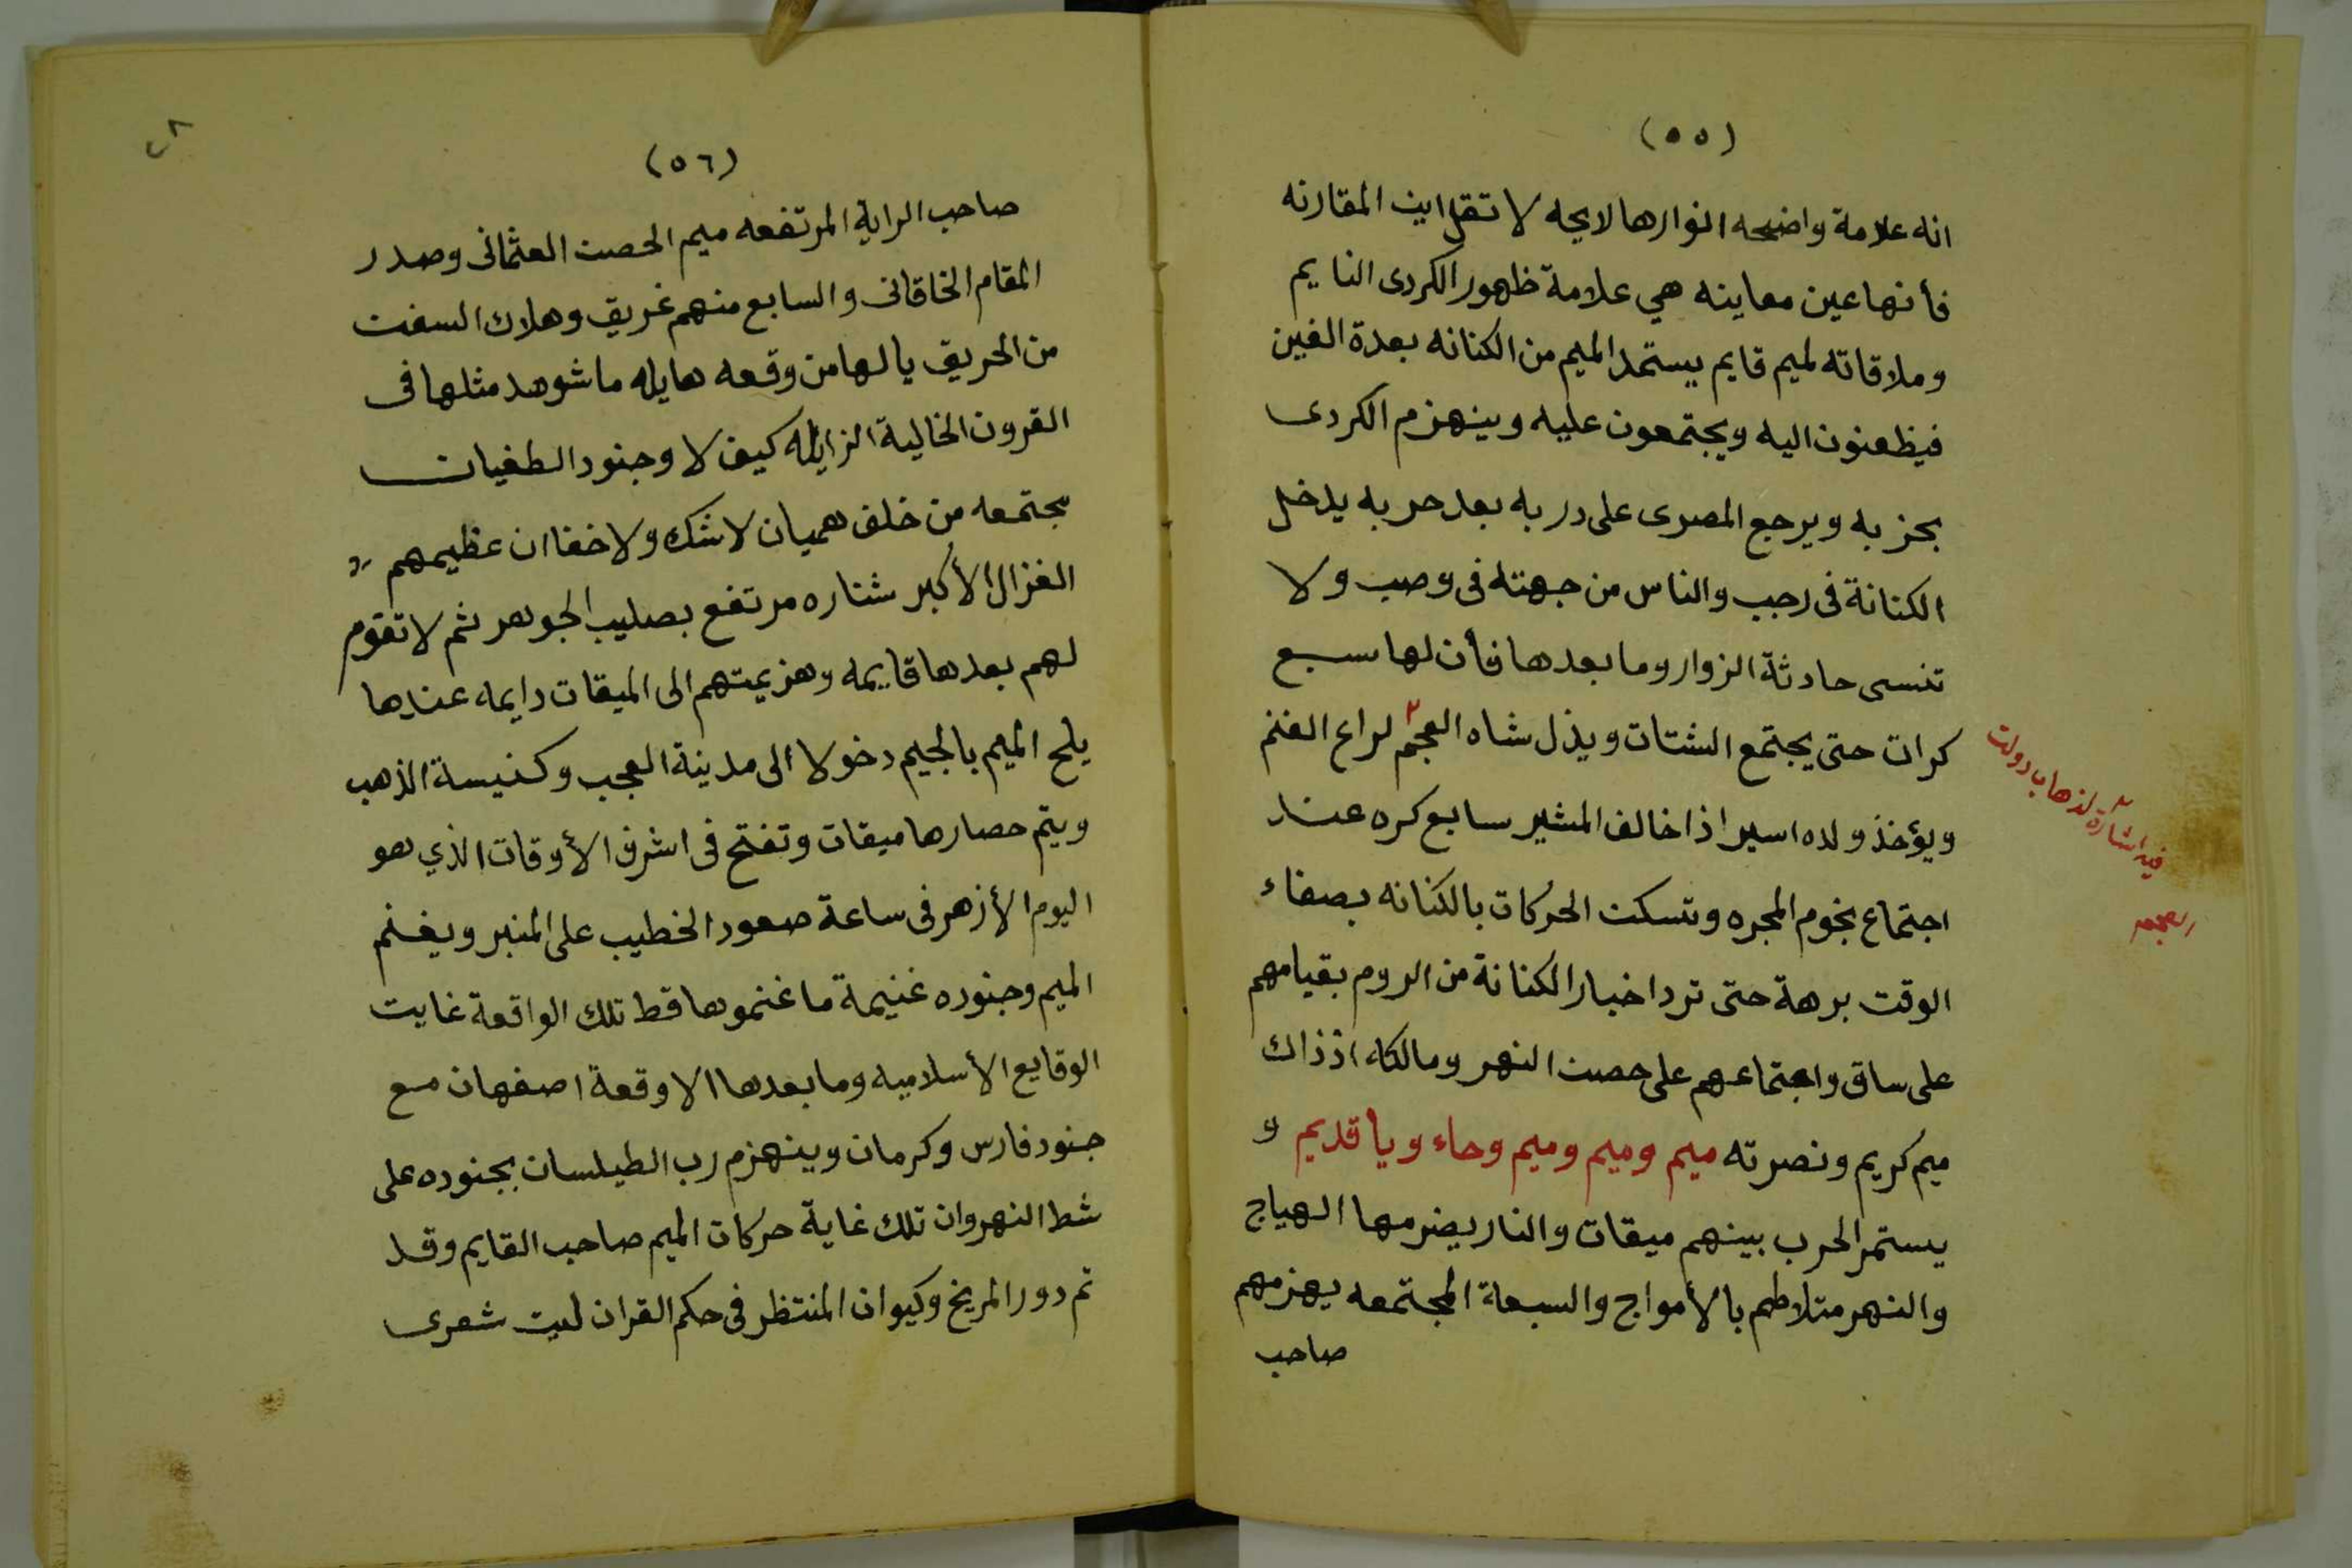 (٥٥)
انه علامة واضحه انوارها لايحه لا تقل اين المقارنه
فأنها عين معاينه هي علامة ظهور الكردى النايم
وملاقاته لميم قايم يستمد الميم من الكنانه بعدة الفين
فيظعنون اليه ويجتمعون عليه وينهزم الكردى
بحزبه ويرجع المصرى على دربه بعد حربه يدخل
الكنانة فى رجب والناس من جهته فى وصب ولا
تنسى حادثة الزوار وما بعدها فأن لها سبع
كرات حتى يجتمع الشتات ويذل شاه العجم لراع الغنم
ويؤخذ ولده اسيرا اذا خالف المشير سابع كره عند
اجتماع نجوم المجره وتسكن الحركات بالكنانه بصفاء
الوقت برهة حتى ترد اخبار الكنانة من الروم بقيامهم
على ساق واجتماعهم على حصن النهر ومالكه اذذاك
ميم كريم ونصرته ميم وميم وميم وحاء ويا قديم و
يستمر الحرب بينهم ميقات والنار يضرمها الهياج
والنهر متلاطم بالأمواج والسبعة المجتمعه يهزمهم
صاحب
فيه اشارة لذهاب دولت
العجم
(٥٦)
صاحب الراية المرتفعه ميم الحصن العثمانى وصدر
المقام الخاقانى والسابع منهم غريق وهلاك السفن
من الحريق يا لها من وقعه هايله ما شوهد مثلها فى
القرون الخالية الزايله كيف لا وجنود الطغيان
مجتمعه من خلف هميان لا شك ولا خفا ان عظيمهم
الغزال الأكبر شناره مرتفع بصليب الجوهر ثم لا تقوم
لهم بعدها قايمه وهزيمتهم الى الميقات دايمه عندها
يلح الميم بالجيم دخولا الى مدينة العجب وكنيسة الذهب
ويتم حصارها ميقات وتفتح فى اشرف الأوقات الذي هو
اليوم الأزهر فى ساعة صعود الخطيب على المنبر ويغنم
الميم وجنوده غنيمة ما غنموها قط تلك الواقعة غايت
الوقايع الأسلاميه وما بعدها الا وقعة اصفهان مع
جنود فارس وكرمان وينهزم رب الطيلسان بجنوده على
شط النهروان تلك غاية حركات الميم صاحب القايم وقد
تم دور المريخ وكيوان المنتظر فى حكم القران ليت شعرى